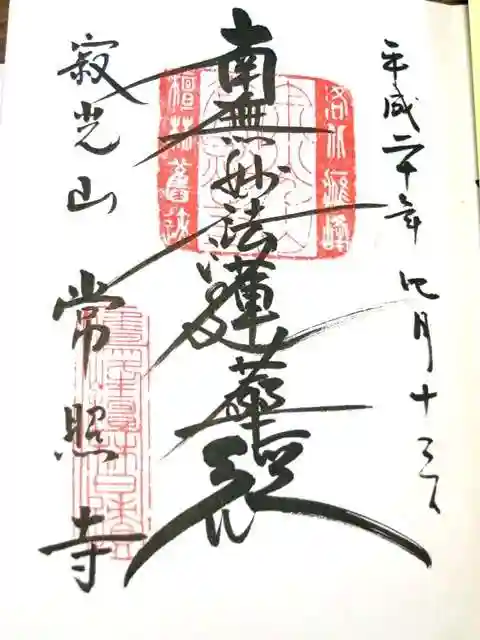 平成二十年四月十三日
南無妙法蓮華経
洛北鷹峰
檀林舊跡
寂光山
常照寺